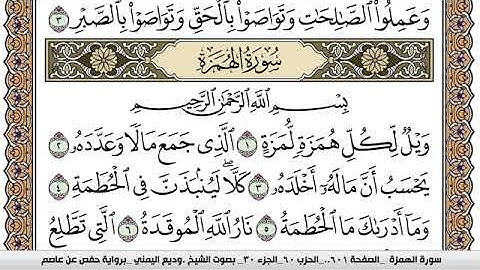 وَعَمِلُوا۟ ٱلصَّـٰلِحَـٰتِ وَتَوَاصَوْا۟ بِٱلْحَقِّ وَتَوَاصَوْا۟ بِٱلصَّبْرِ ٣
سُورَةُ الهُمَزَةِ
بِسْمِ ٱللَّهِ ٱلرَّحْمَـٰنِ ٱلرَّحِيمِ
وَيْلٌ لِّكُلِّ هُمَزَةٍ لُّمَزَةٍ ١ ٱلَّذِى جَمَعَ مَالًا وَعَدَّدَهُۥ ٢
يَحْسَبُ أَنَّ مَالَهُۥٓ أَخْلَدَهُۥ ٣ كَلَّا ۖ لَيُنۢبَذَنَّ فِى ٱلْحُطَمَةِ ٤
وَمَآ أَدْرَىٰكَ مَا ٱلْحُطَمَةُ ٥ نَارُ ٱللَّهِ ٱلْمُوقَدَةُ ٦ ٱلَّتِى تَطَّلِعُ
سورة الهمزة _الصفحة ٦٠١..._الحزب ٦٠_الجزء ٣٠_ بصوت الشيخ .وديع اليمني _برواية حفص عن عاصم